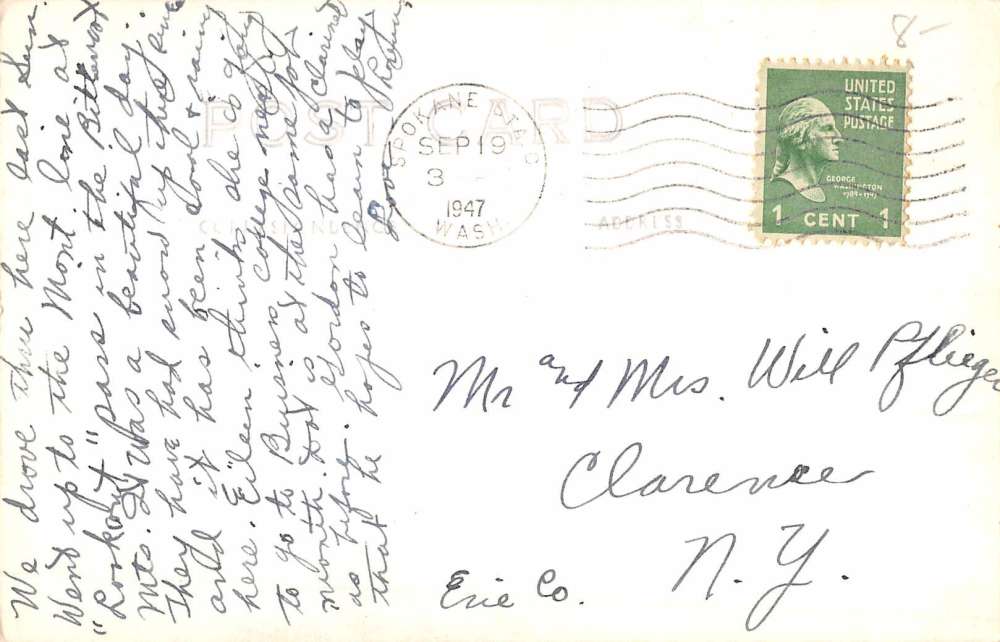 We drove thru here last Sun.
Went up to the Mont. line at
"Lookout" pass in the Bitterroot
Mts. It was a beautiful day.
They have had snow up there since
and it has been cool & rainy
here. Eileen thinks she is going
to go to Business college next
month. Dot is at the same job
as before. Gordon has a clarinet
that he hopes to learn to play
Love
8-
POST CARD
SPOKANE
SEP 19
3
1947
WASH.
CORRESPONDENCE
ADDRESS
UNITED
STATES
POSTAGE
GEORGE
WASHINGTON
1789-1797
1 CENT 1
Mr and Mrs. Will Pflieger
Clarence
N.Y.
Erie Co.